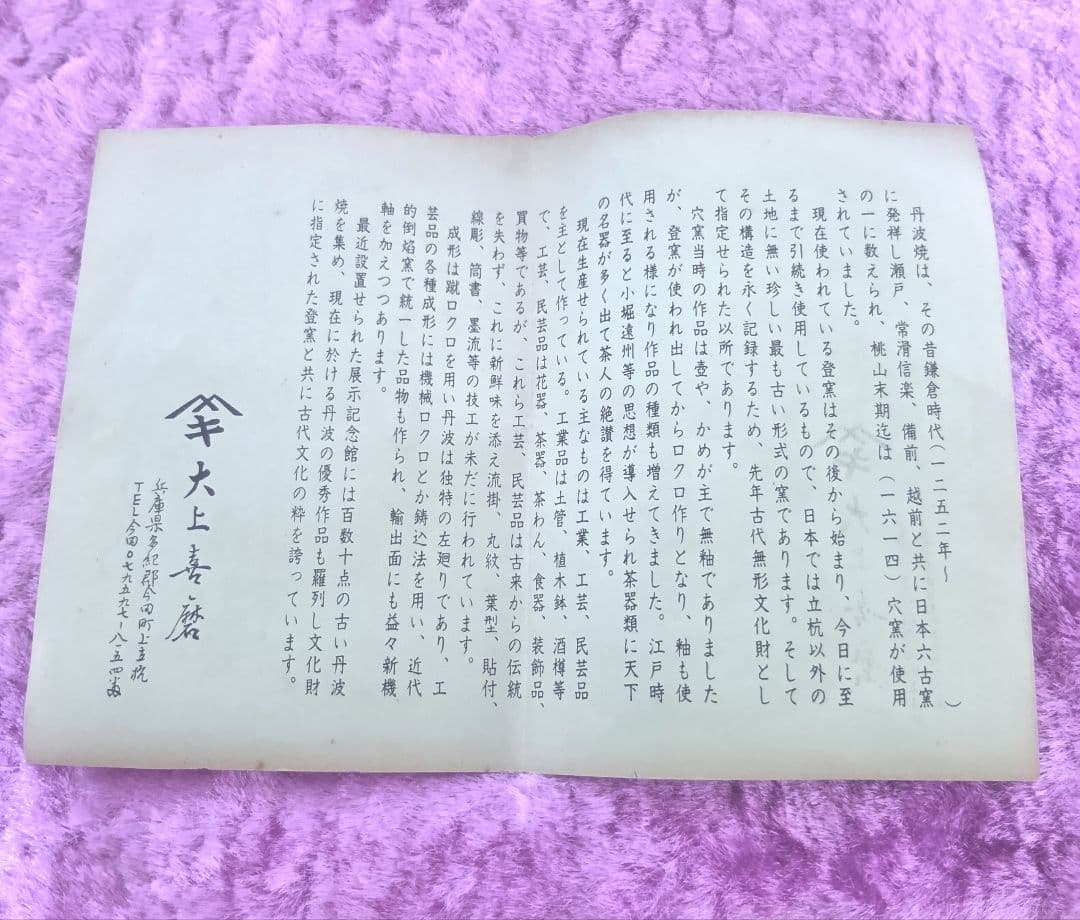 丹波焼は、その昔鎌倉時代(一二五二年~　)
に発祥し瀬戸、常滑信楽、備前、越前と共に日本六古窯
の一に数えられ、桃山末期迄は(一六一四)穴窯が使用
されていました。
現在使われている登窯はその後から始まり、今日に至
るまで引続き使用しているもので、日本では立杭以外の
土地に無い珍しい最も古い形式の窯であります。そして
その構造を永く記録するため、先年古代無形文化財とし
て指定せられた以所であります。
穴窯当時の作品は壺や、かめが主で無釉でありました
が、登窯が使われ出してからロクロ作りとなり、釉も使
用される様になり作品の種類も増えてきました。江戸時
代に至ると小堀遠州等の思想が導入せられ茶器類に天下
の名器が多く出て茶人の絶讃を得ています。
現在生産せられている主なものは工業、工芸、民芸品
を主として作っている。工業品は土管、植木鉢、酒樽等
で、工芸、民芸品は花器、茶器、茶わん、食器、装飾品、
買物等であるが、これら工芸、民芸品は古来からの伝統
を失わず、これに新鮮味を添え流掛、丸紋、葉型、貼付、
線彫、筒書、墨流等の技工が未だに行われています。
成形は蹴ロクロを用い丹波は独特の左廻りであり、工
芸品の各種成形には機械ロクロとか鋳込法を用い、近代
的倒焰窯で統一した品物も作られ、輸出面にも益々新機
軸を加えつつあります。
最近設置せられた展示記念館には百数十点の古い丹波
焼を集め、現在に於ける丹波の優秀作品も羅列し文化財
に指定された登窯と共に古代文化の粋を誇っています。
キ 大上喜磨
兵庫県多紀郡今田町上立杭
TEL今田〇七九五九七-八-五四番